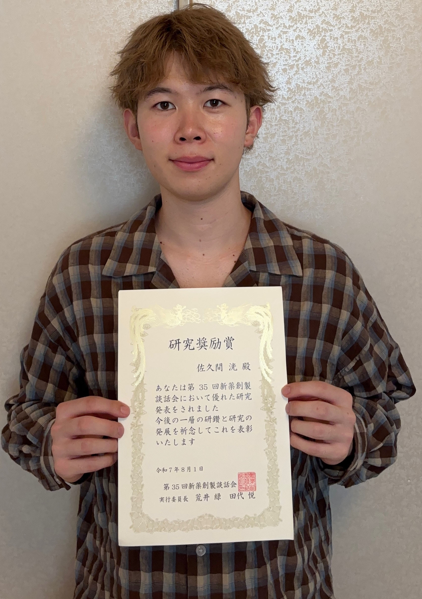 研究奨励賞
佐久間 洸 殿
あなたは第 35 回新薬創製
談話会において優れた研究
発表をされました
今後の一層の研鑽と研究の
発展を祈念してこれを表彰
いたします
令和7年8月1日
第35回新薬創製談話会
実行委員長 荒井 緑 田代 悦